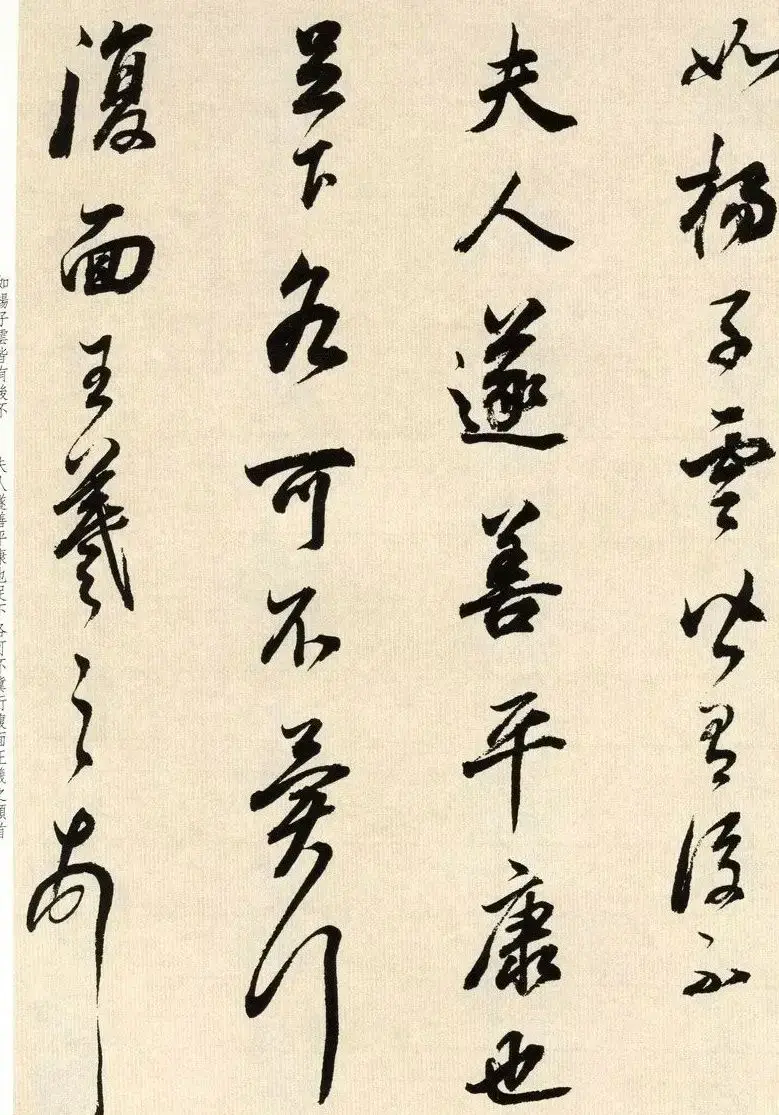 如楊子雲皆有後不
夫人遂善平康也
足下各可不冀行
復面王羲之頓首
如楊子雲皆有後不 夫人遂善平康也足下各可不冀行復面王羲之頓首